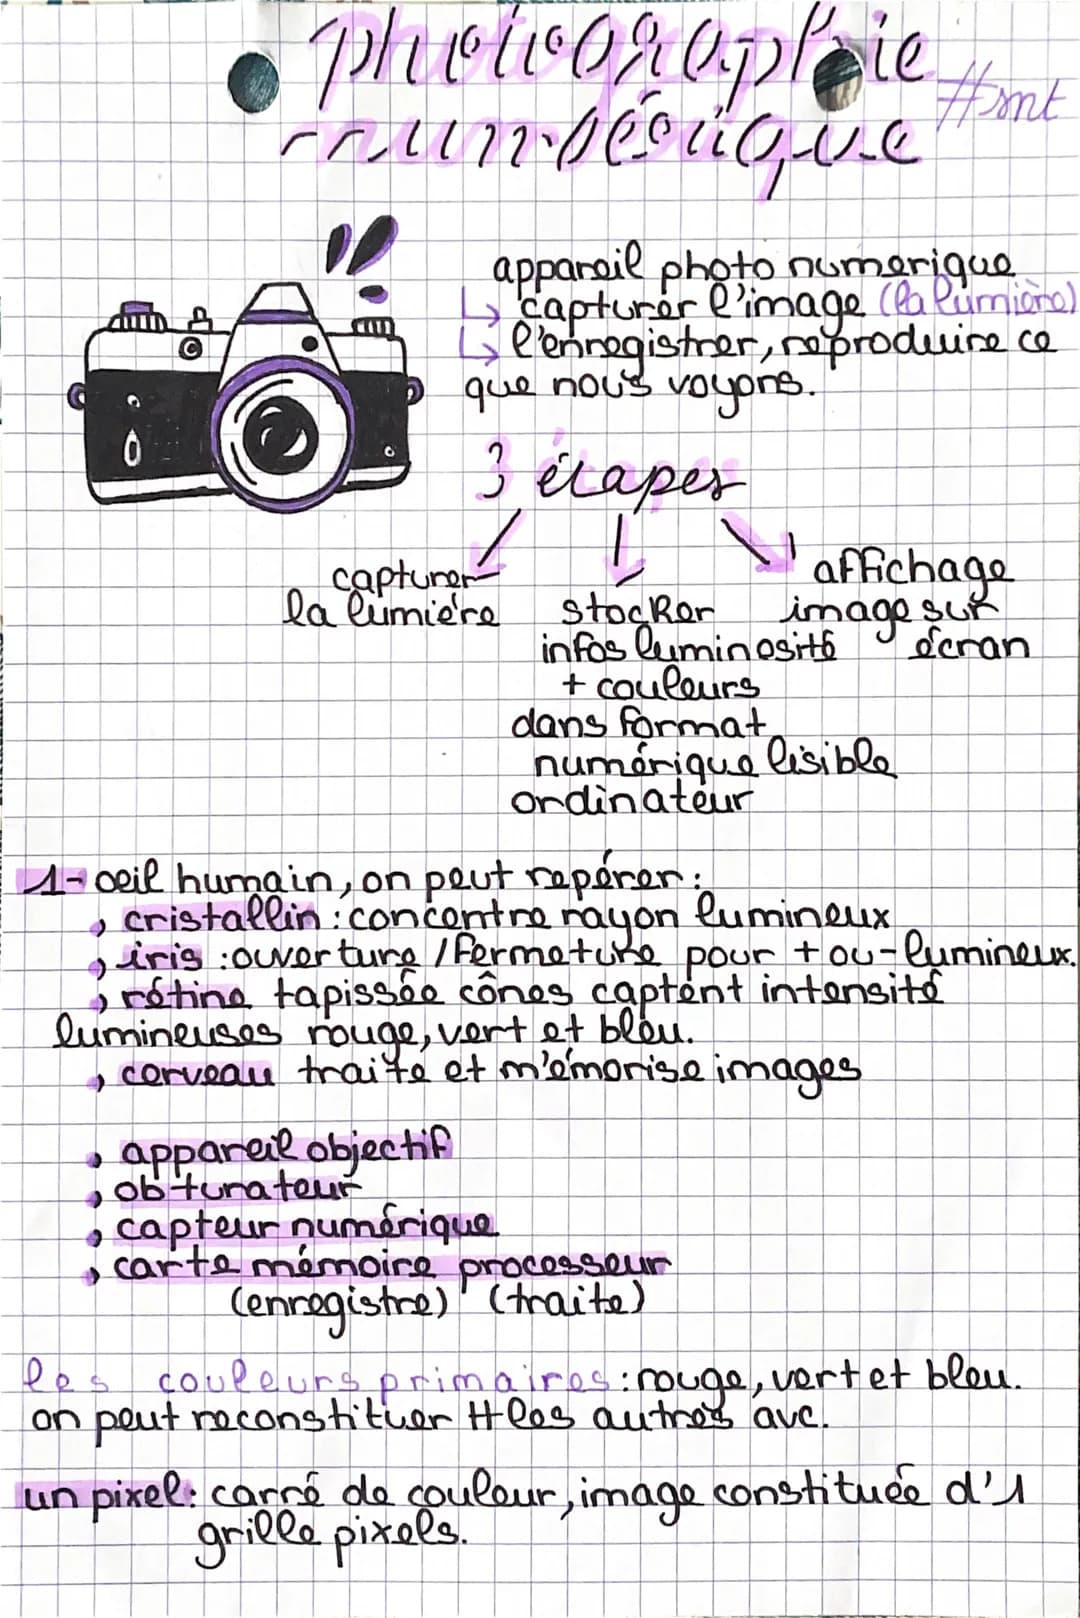 photographie
numérique #snt
appareil photo numerique
↳ capturer l'image (la lumière)
↳ l'enregistrer, reproduire ce
que nous voyons.
3 étapes
capturer
la lumière
stocker
infos luminosité
+ couleurs
dans format
numérique lisible
ordinateur
affichage
image sur
écran
1- oeil humain, on peut repérer :
, cristallin : concentre rayon lumineux
, iris : ouverture / fermeture pour + ou - lumineux.
, rétine tapissée cônes captent intensité
lumineuses rouge, vert et bleu.
, cerveau traite et m'émorise images
, appareil objectif
, obturateur
, capteur numérique
, carte mémoire processeur
(enregistre) (traite)
les couleurs primaires : rouge, vert et bleu.
on peut reconstituer tt les autres avc.
un pixel : carré de couleur, image constituée d'1
grille pixels.